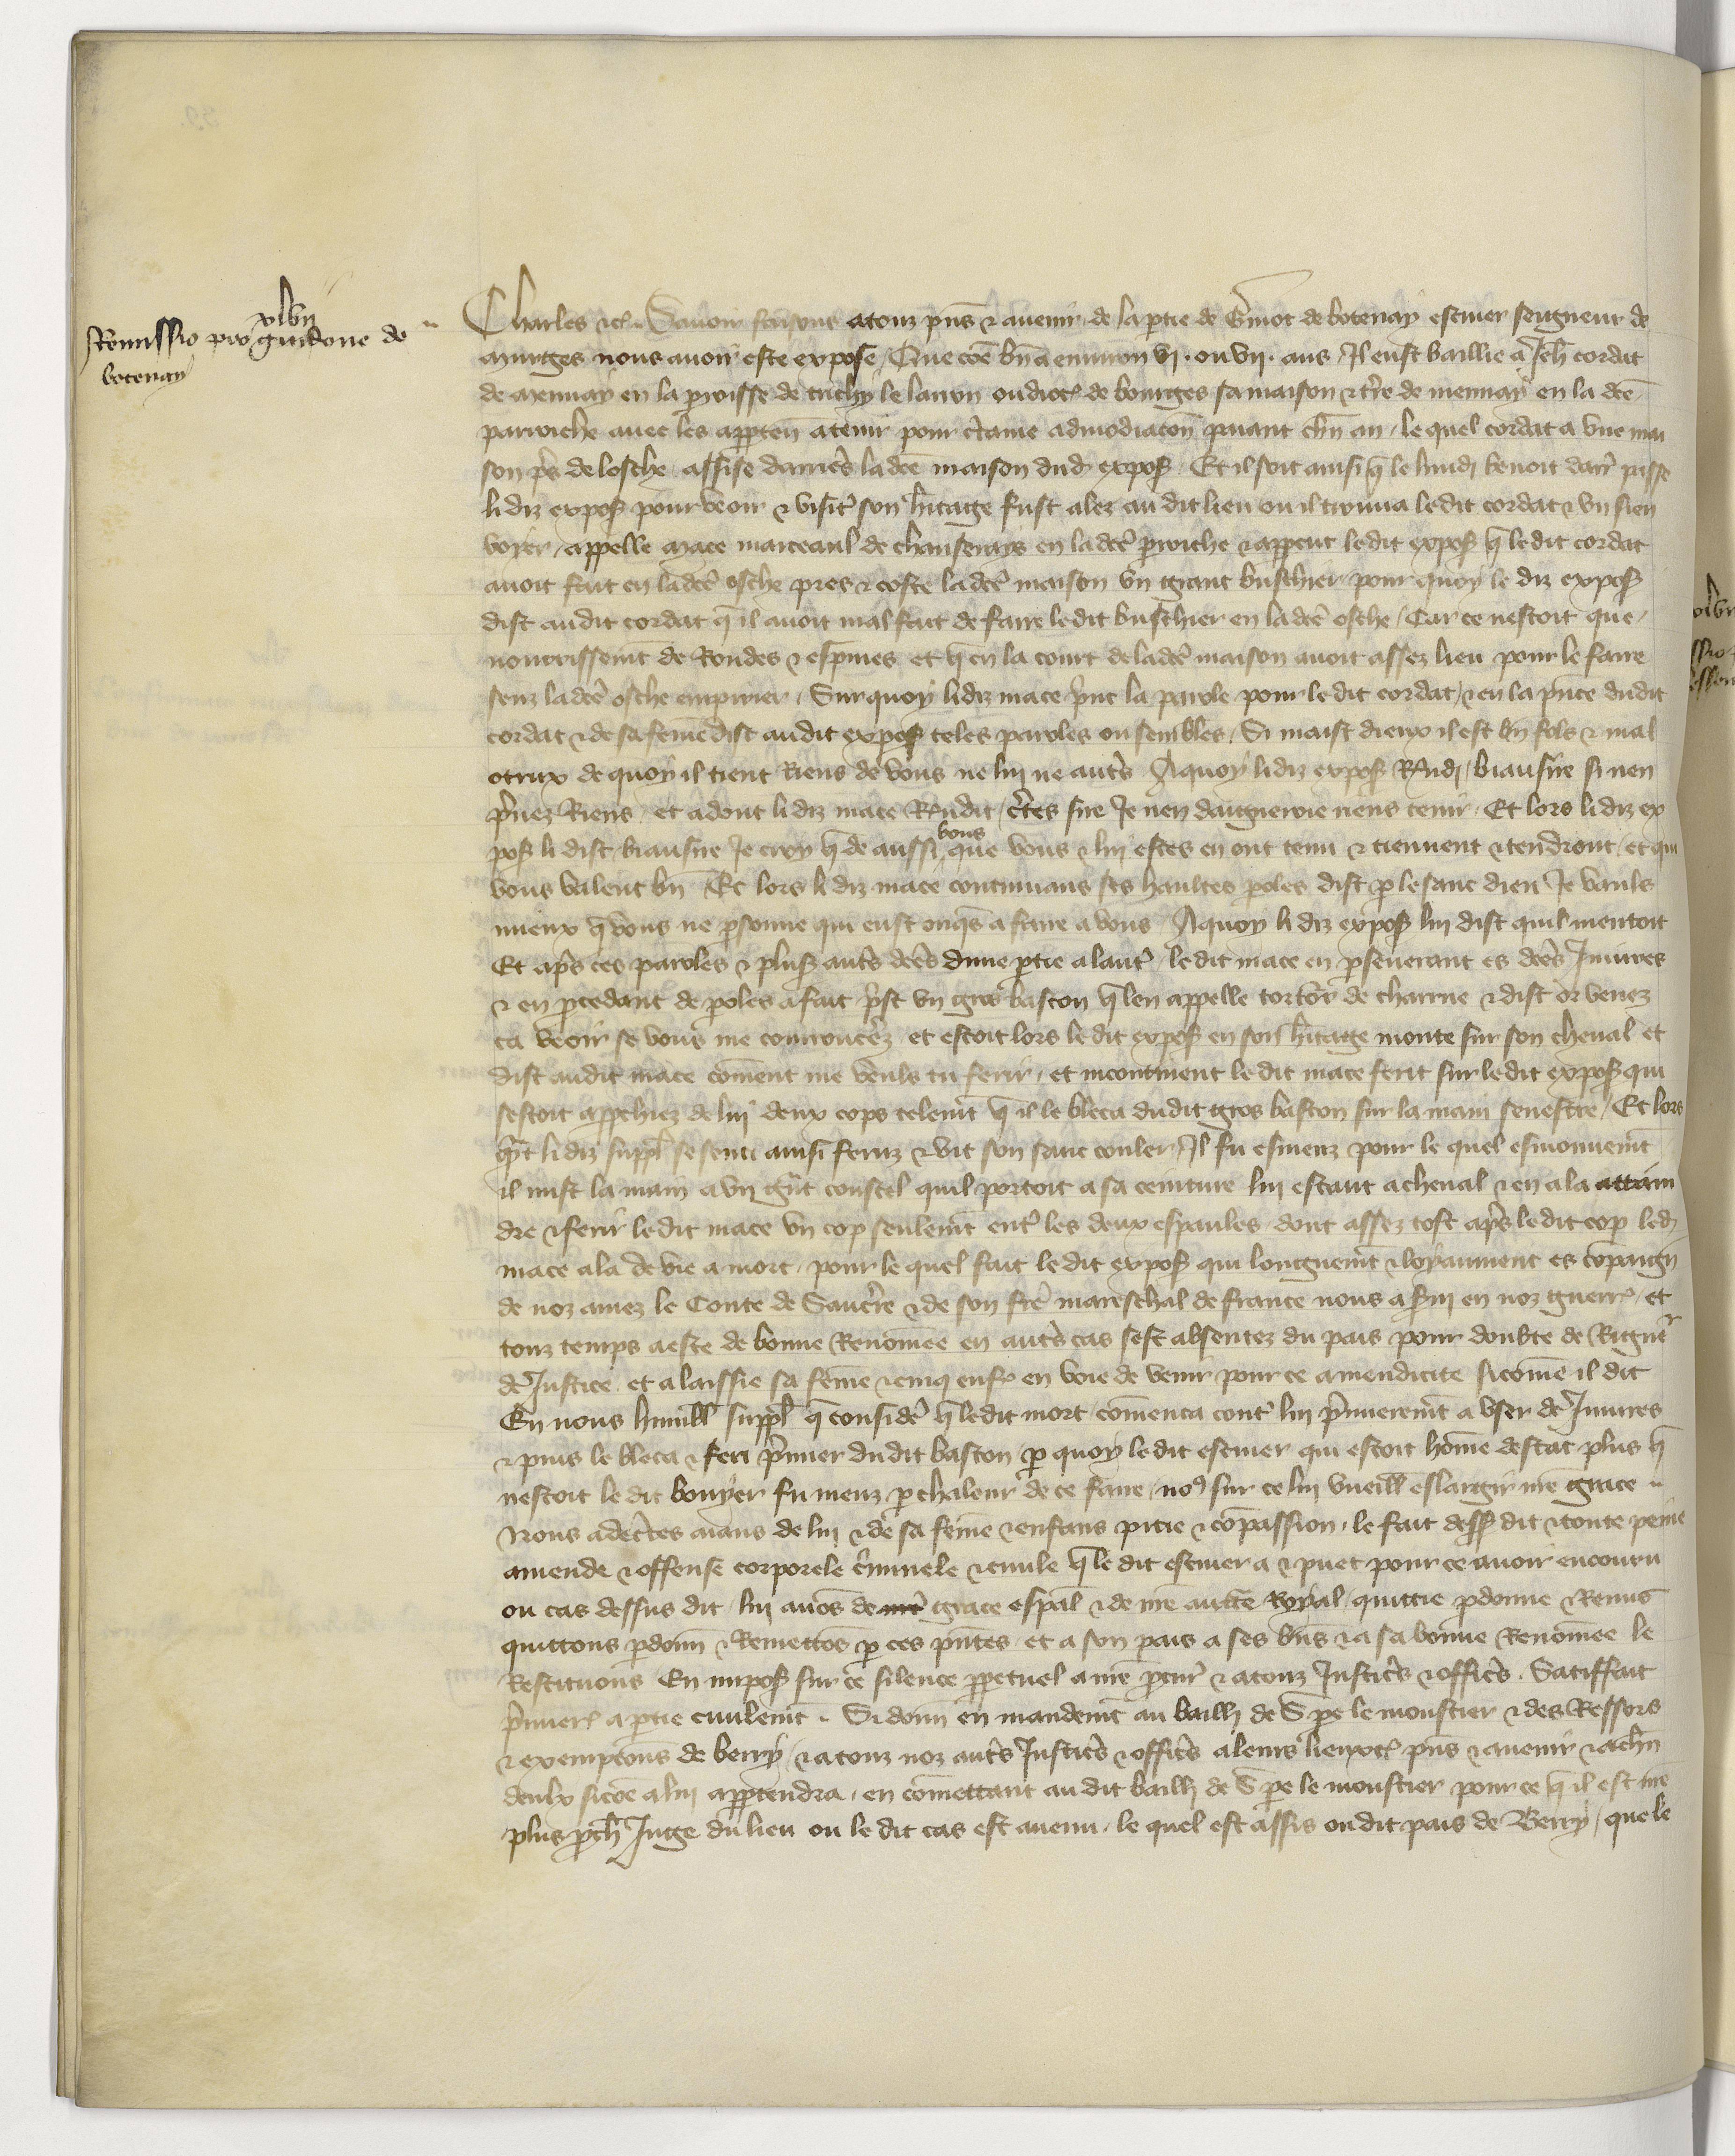 xlvii
Remissio pro guidone de
botenay
Charles etc. Savoir faisons a touz pns & avenir de la ptie de Guiot de botenay escuier seigneur de
murges nous avoir este expose Que coe bn a environ vi. ou vii. ans Il eust baillie a Jeh cordat
de mennay en la proisse de trichy le larron ou dioc de bourges sa maison & tre de mennay en la dce
parroiche avec les apparten a tenir pour ctaine admodiacon paiant chn an, le quel cordat a une mai
son ps de losche assise darries la dce maison dud expos Et il soit ainsi q le lundi benoit darr passe
li diz expos pour veoir & visit son hitage fust alez au dit lieu ou il trouva ledit cordat & un sien
voyer, appelle mace marceaul de chansenays en la dce proiche & apperceut le dit expos q le dit cordat
avoit fait en la dce osche pres & coste la dce maison un grant buschier, pour quoy le diz expos
dist au dit cordat q il avoit mal fait de faire le dit buschier en la dce osche, Car ce nestoit que
nourrissemt de Rondes & espines, et q en la court de la dce maison avoit assez lieu pour le faire
senz la dce osche empirier, Sur quoy li diz mace prist la parole pour le dit cordat, & en la pnce du dit
cordat & de sa feme dist au dit expos teles paroles ou sembles, Si maist dieux il est bn fols & mal
otrux de quoy il tient Riens de vous ne luy ne auts A quoy li diz expos Rndi, biausire si nen
prnez Riens, et adont li diz mace Rndit, ctes sire Je nen daigneroie riens tenir. Et lors li diz ex
pos li dist, biausire Je croy q de aussi bons que vous & luy estes en ont tenu & tiennent & tendront, et qui
vous valent bn Et lors li diz mace continuans ses haultes poles dist p le sanc dieu Je vauls
mieux q vous ne psonne qui eust onqs a faire a vous A quoy li diz expos luy dist quil mentoit
Et aps ces paroles & plus auts dces dune ptie a laut, le dit mace en pseverant es dces Iniures
& en pcedant de poles a fait prist un gros baston q len appelle tortor de charrue & dist or venez
ca veoir se vous me couroucez et estoit lors le dit expos en son hitage monte sur son cheval et
dist au dit mace coment me veuls tu ferir, et incontinent le dit mace ferit sur le dit expos qui
sestoit approchiez de luy deux cops telemt q il le bleca du dit gros baston sur la main senestre, Et lors
qnt li diz suppl se senti ainsi feruz & vit son sanc couler, Il fu esmeuz pour le quel esmouvemt
il mist la main a un gnt coustel quil portoit a sa ceinture luy estant a cheval & en a la attain
dre & ferir le dit mace un cop seulemt ent les deux espaules dont assez tost aps le dit cop led
mace ala de vie a mort, pour le quel fait le dit expos qui longuemt & loyaument es compaign
de noz amez le Conte de Sancrre & de son fre mareschal de france nous a svi en noz guerr, et
touz temps a este de bonne Renomee en auts cas sest absentez du pais pour doubte de Rigueur
de Justice. et a laissie sa feme & cinq enfs en voie de venir pour ce a mendicite sicome il dit
En nous humill suppl q considé q le dit mort, comenca cont luy primieremt a user de Iniures
& puis le bleca & feri primier du dit baston p quoy le dit escuier qui estoit home destat plus q
nestoit le dit bouyer fu meuz p chaleur de ce faire, nos sur ce luy vueill eslargir nre grace
Nous adectes aians de luy & de sa feme & enfans pitie & compassion. le fait dess dit & toute peine
amende & offense corporele criminele & civile q le dit escuier a & puet pour ce avoir encouru
ou cas dessus dit luy avos de grace espal & de nre aucte Royal, quittie pdonne & Remis
quittons pdonn & Remettos p ces pntes et a son pais a ses bns & a sa bonne Renomee le
Restituons En impos sur ce silence ppetuel a nre pcur & a touz Justics & offics. Satiffait
primier a ptie civilemt. Si donn en mandemt au bailli de S pe le moustier & des Ressors
& exempcons de berry & a touz noz auts Justics & offics a leurs lieuxt pns & avenir & a chn
deulx sicoe a luy appartendra, en comettant au dit bailli de S pe le moustier pour ce q il est nre
plus pch Juge du lieu ou le dit cas est avenu, le quel est assis ou dit pais de Berry, que le